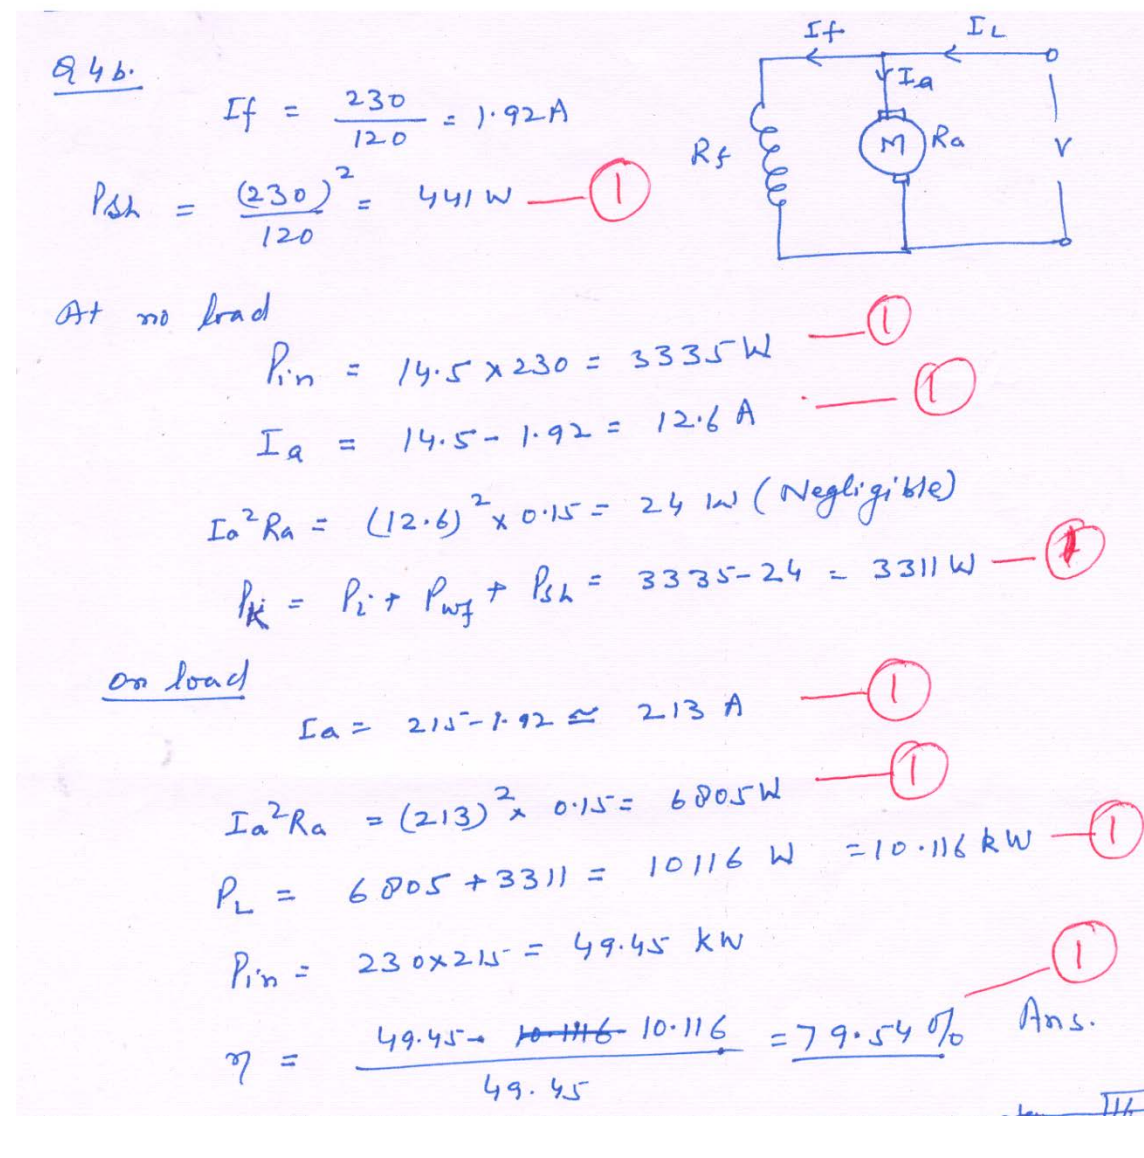 Q4b.
If = 230/120 = 1.92A
Psh = (230)²/120 = 441 W — 1
If IL
Ia
Rf M Ra V
At no load
Pin = 14.5 x 230 = 3335 W — 1
Ia = 14.5 - 1.92 = 12.6 A — 1
Ia²Ra = (12.6)² x 0.15 = 24 W (Negligible)
Pk = Pi + Pwf + Psh = 3335-24 = 3311 W — 1
on load
Ia = 215-1.92 ≃ 213 A — 1
Ia²Ra = (213)² x 0.15 = 6805W — 1
PL = 6805 + 3311 = 10116 W = 10.116 kW — 1
Pin = 230x215 = 49.45 kW
η = 49.45 - 10.116 / 49.45 = 79.54 % Ans. — 1